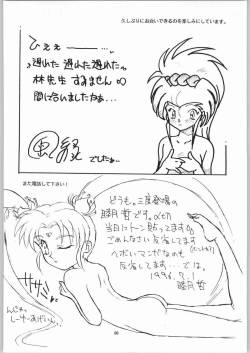 久しぶりにお会いできるのを楽しみにしています。
ひええーーー…。
遅れた遅れた遅れたぁ
林先生 すみません
間に合いましたねぇ…
でしたぁ…
また電話して下さい!
どうも。三度登場の
睦月哲です。
当日にトン貼ってます
ごめんなさい反省してます
ヘボいマンガなのも
反省してます…。では。
1996.7.1
睦月哲
ササッ
にんじゃ
しーゆーあげいん。